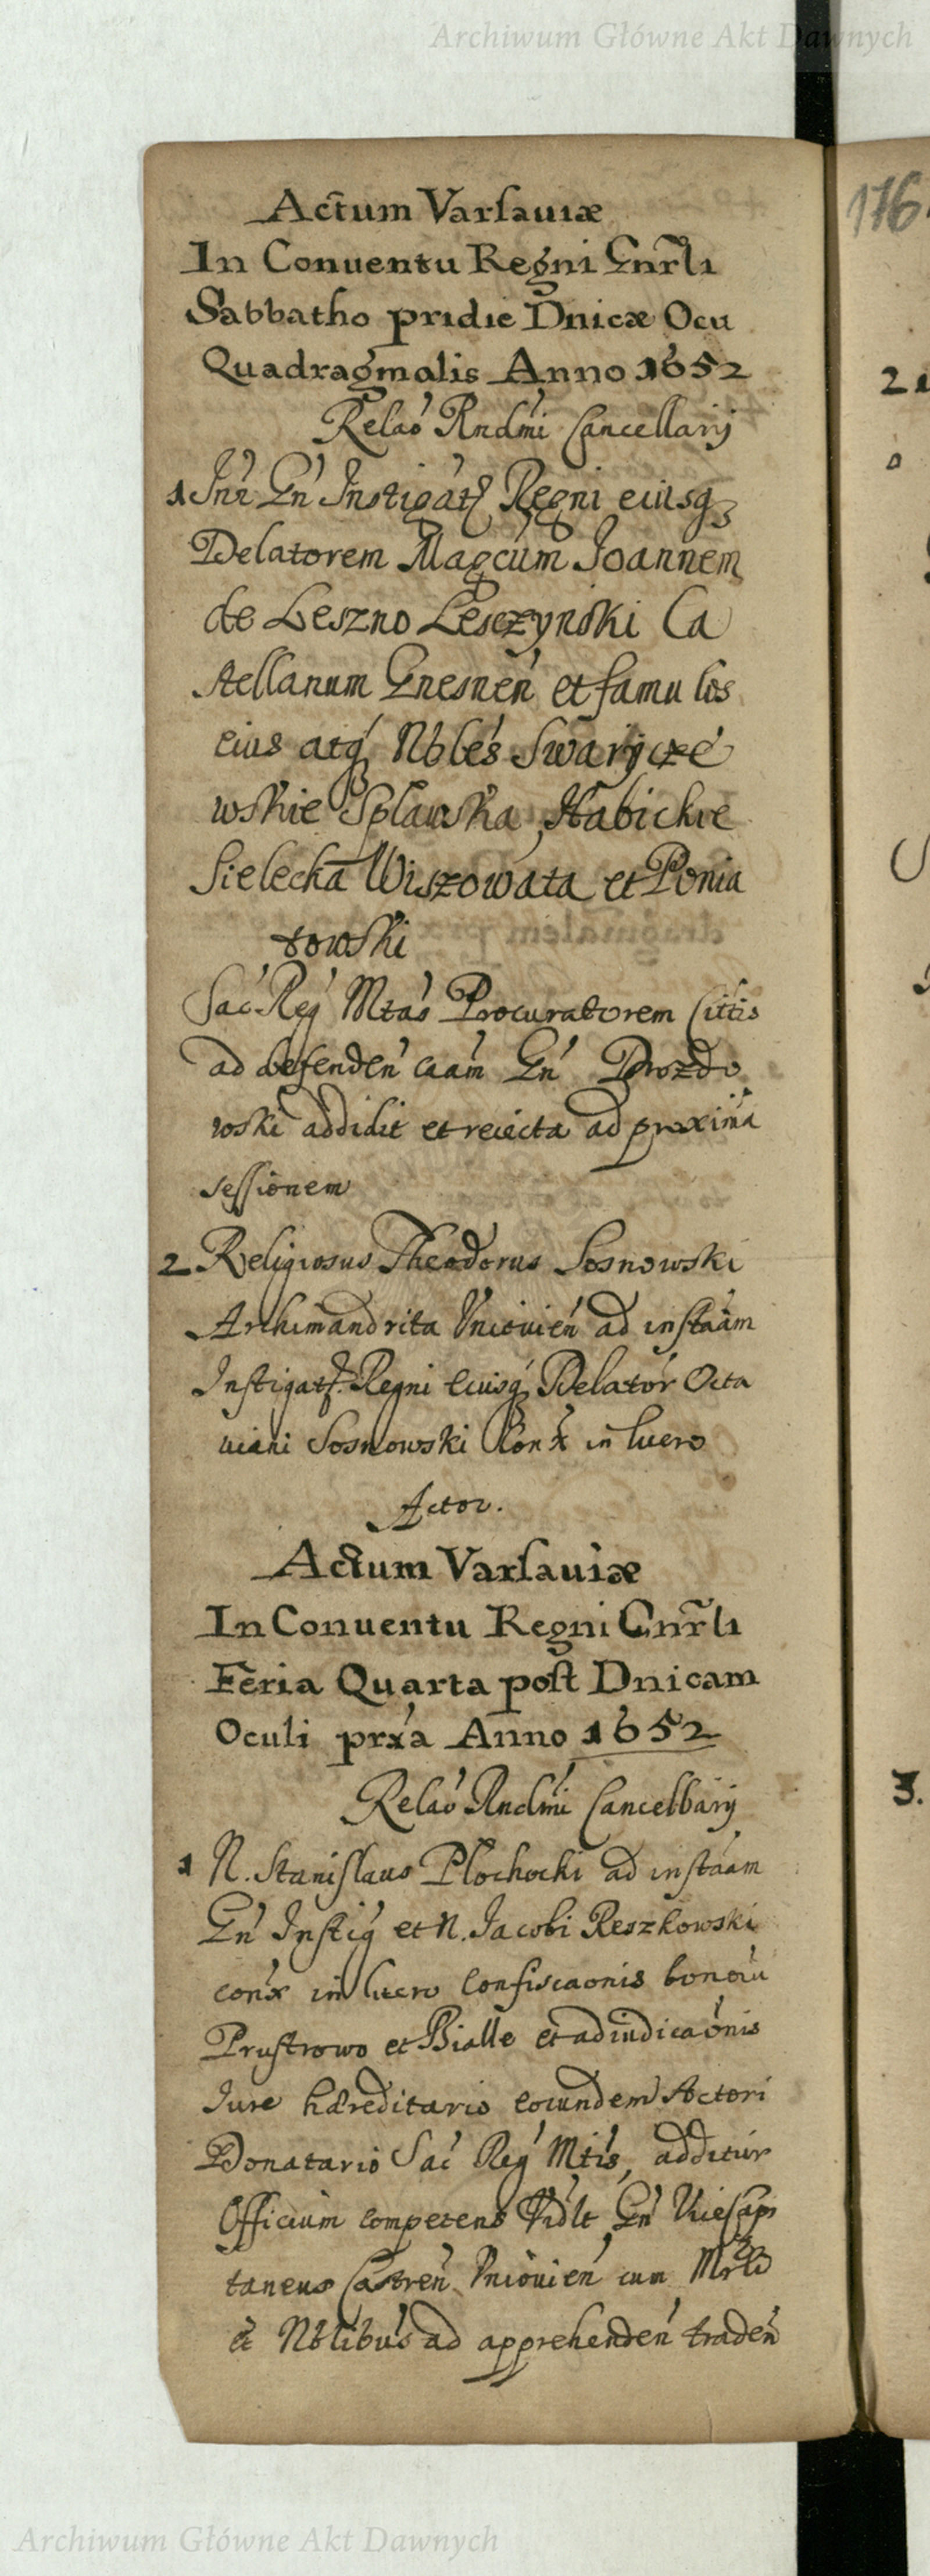 Archiwum Główne Akt Dawnych
176
Actum Varsauiæ
In Conuentu Regni Gnrli
Sabbatho pridie Dnicæ Ocu
Quadragmalis Anno 1652
Relao Rndmi Cancellarij
1 Inr Gn Instigat Regni eiusq
Delatorem Magcum Joannem
de Leszno Lesczynski Ca
stellanum Gnesnen et famulos
eius atq Nbles Swarycze
wskie Splawska Habickie
Sielecka Wiszowata et Ponia
towski
Sac Reg Mtas Procuratorem Cittis
ad defenden caam Gn Drozdo
wski addidit et reiecta ad proxima
sessionem
2 Religiosus Theodorus Sosnowski
Archimandrita Uniouien ad instaam
Instigat. Regni Eiusq Delator Octa
uiani Sosnowski Conx in lucro
Actor.
Actum Varsauiæ
In Conuentu Regni Gnrli
Feria Quarta post Dnicam
Oculi prxa Anno 1652
Relao Rndmi Cancellarij
1 N. Stanislaus Plochocki ad instaam
Gn Instig et N. Jacobi Reszkowski
conx in lucro Confiscaonis bonoru
Prustrowo et Bialle et adiudicaonis
Jure hæreditario eorundem Actori
Donatario Sac Reg Mtis, additur
Officium competens Vidlt Gn Vicecapi
taneus Castren Uniouien cum
et Nblibus ad apprehenden traden
2
3.
Archiwum Główne Akt Dawnych